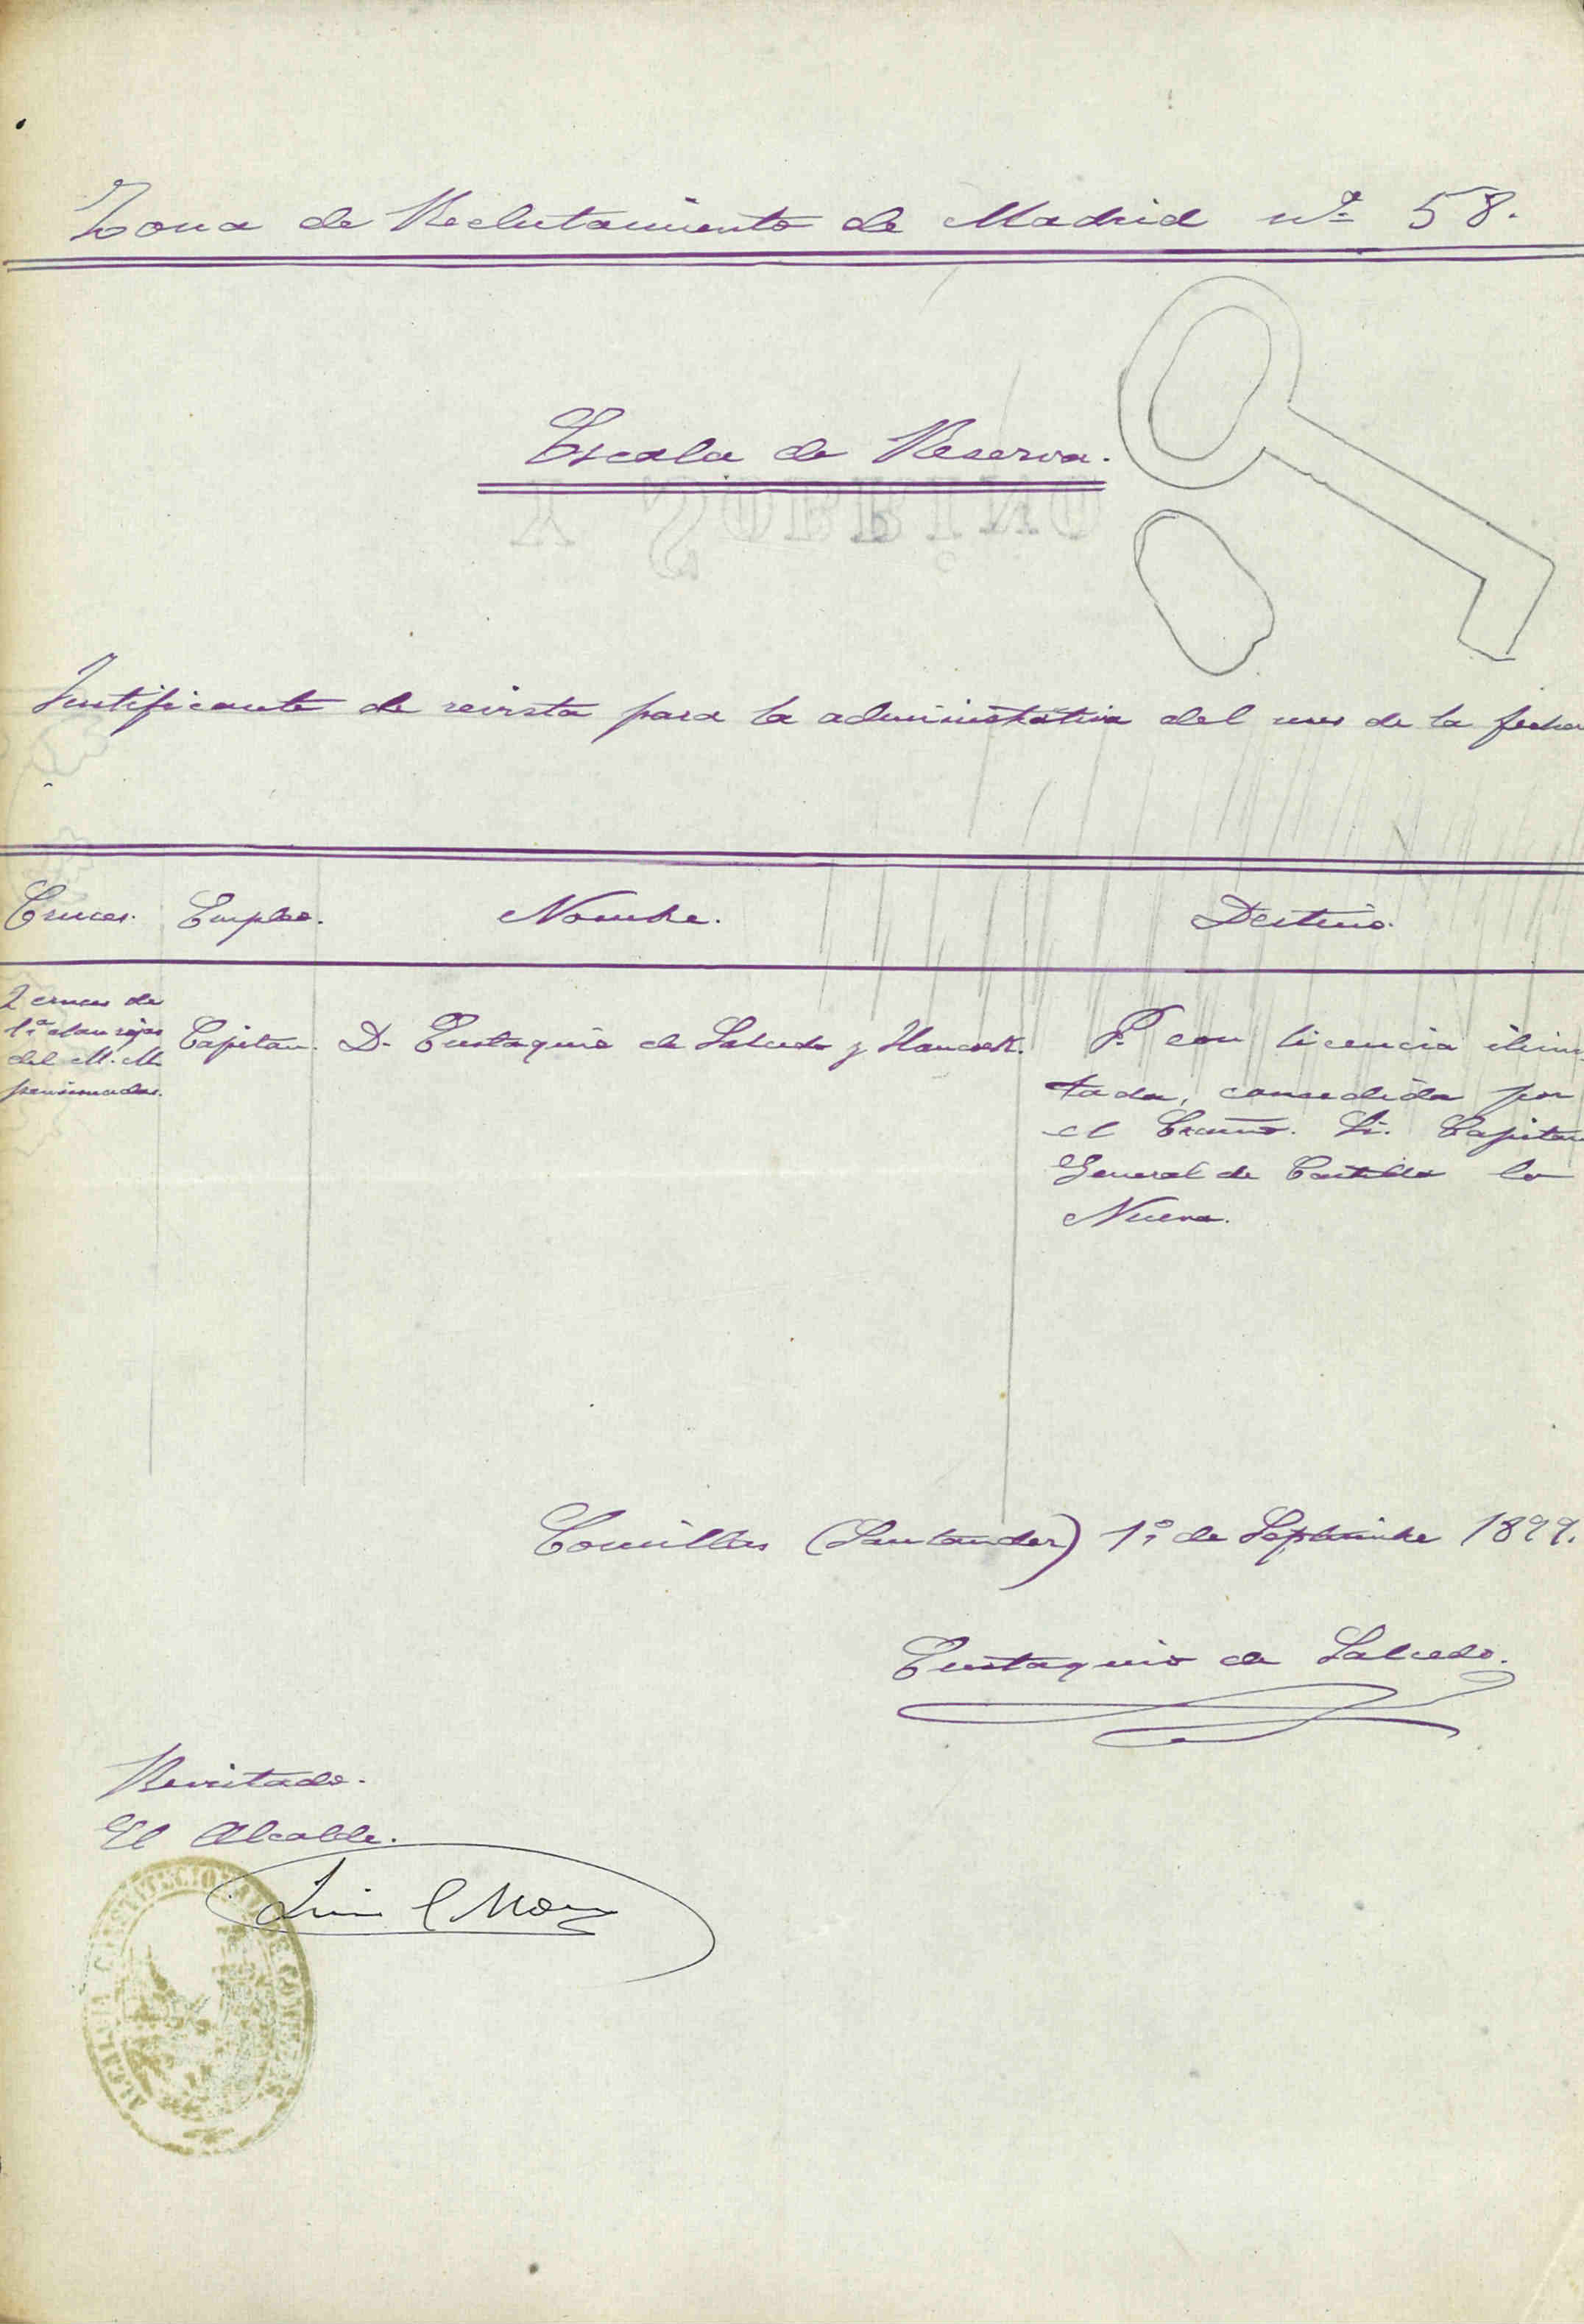 Zona de Reclutamiento de Madrid nº 58.
Escala de Reserva.
Y SOBRINO
Justificante de revista para la administrativa del mes de la fecha
Cruces. Empleo. Nombre. Destino.
2 cruces de
1.ª clase rojas
del M. M.
pensionadas.
Capitan. D. Eustaquio de Salcedo y Hancock.
P. con licencia ilimi
tada, consedida por
el Excmo. Sr. Capitan
General de Castilla la
Nueva.
Comillas (Santander) 1º de Septiembre 1899.
Eustaquio de Salcedo.
Revistado.
El Alcalde.
ALCALDIA CONSTITUCIONAL DE COMILLAS